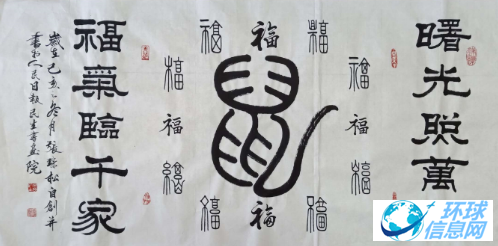 曙光照萬
福 福 福
福 福
福 福
福 福
福 福 福
鼠
福氣臨千家
歲在己亥冬月張松自創并
書於人民日報民生書畫院
环球
信息网